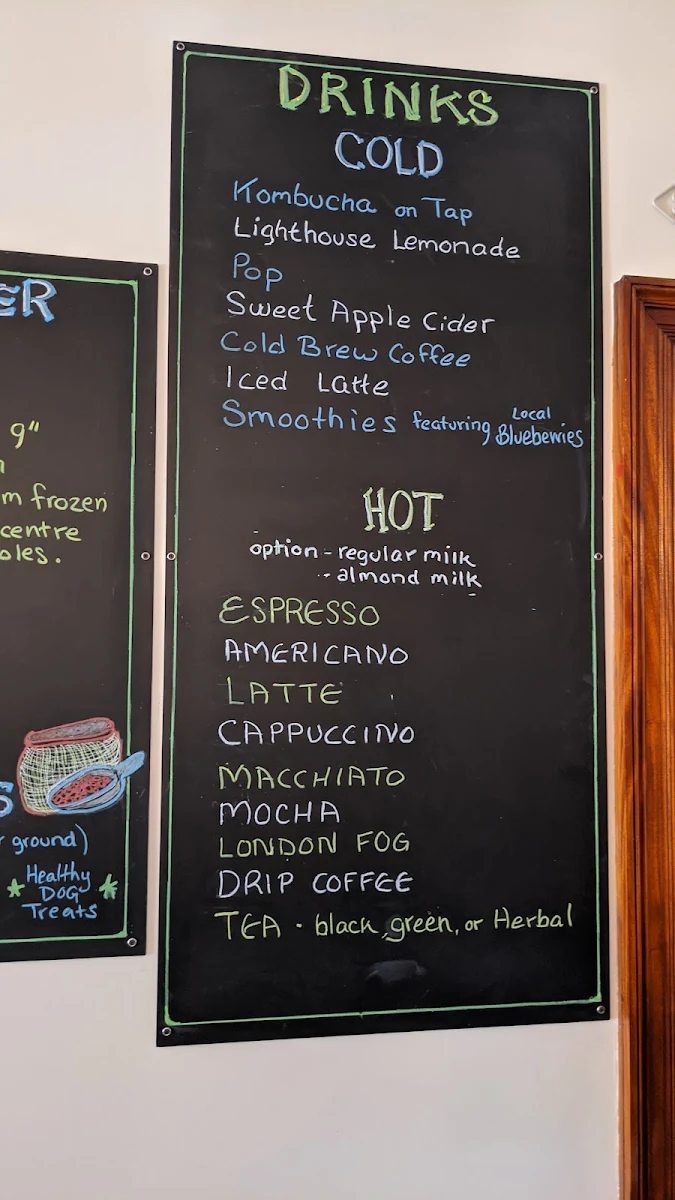 DRINKS
COLD
Kombucha on Tap
Lighthouse Lemonade
Pop
Sweet Apple Cider
Cold Brew Coffee
Iced Latte
Smoothies featuring Local Blueberries
HOT
option - regular milk
- almond milk
ESPRESSO
AMERICANO
LATTE
CAPPUCCINO
MACCHIATO
MOCHA
LONDON FOG
DRIP COFFEE
TEA · black, green, or Herbal
ER
9"
m frozen
centre
oles.
S
ground)
Healthy
DOG
Treats